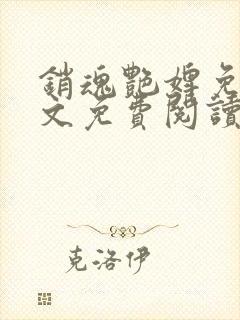 銷魂艷婢免
文免費閱讀
克洛伊